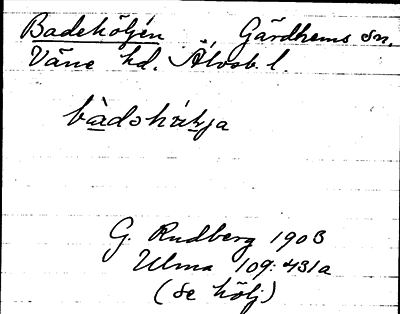 Badehöljen Gärdhems sn.
Väne hd. Älvsb. l.
G. Rudberg 1903
Ulma 109:431a
(se hölj)